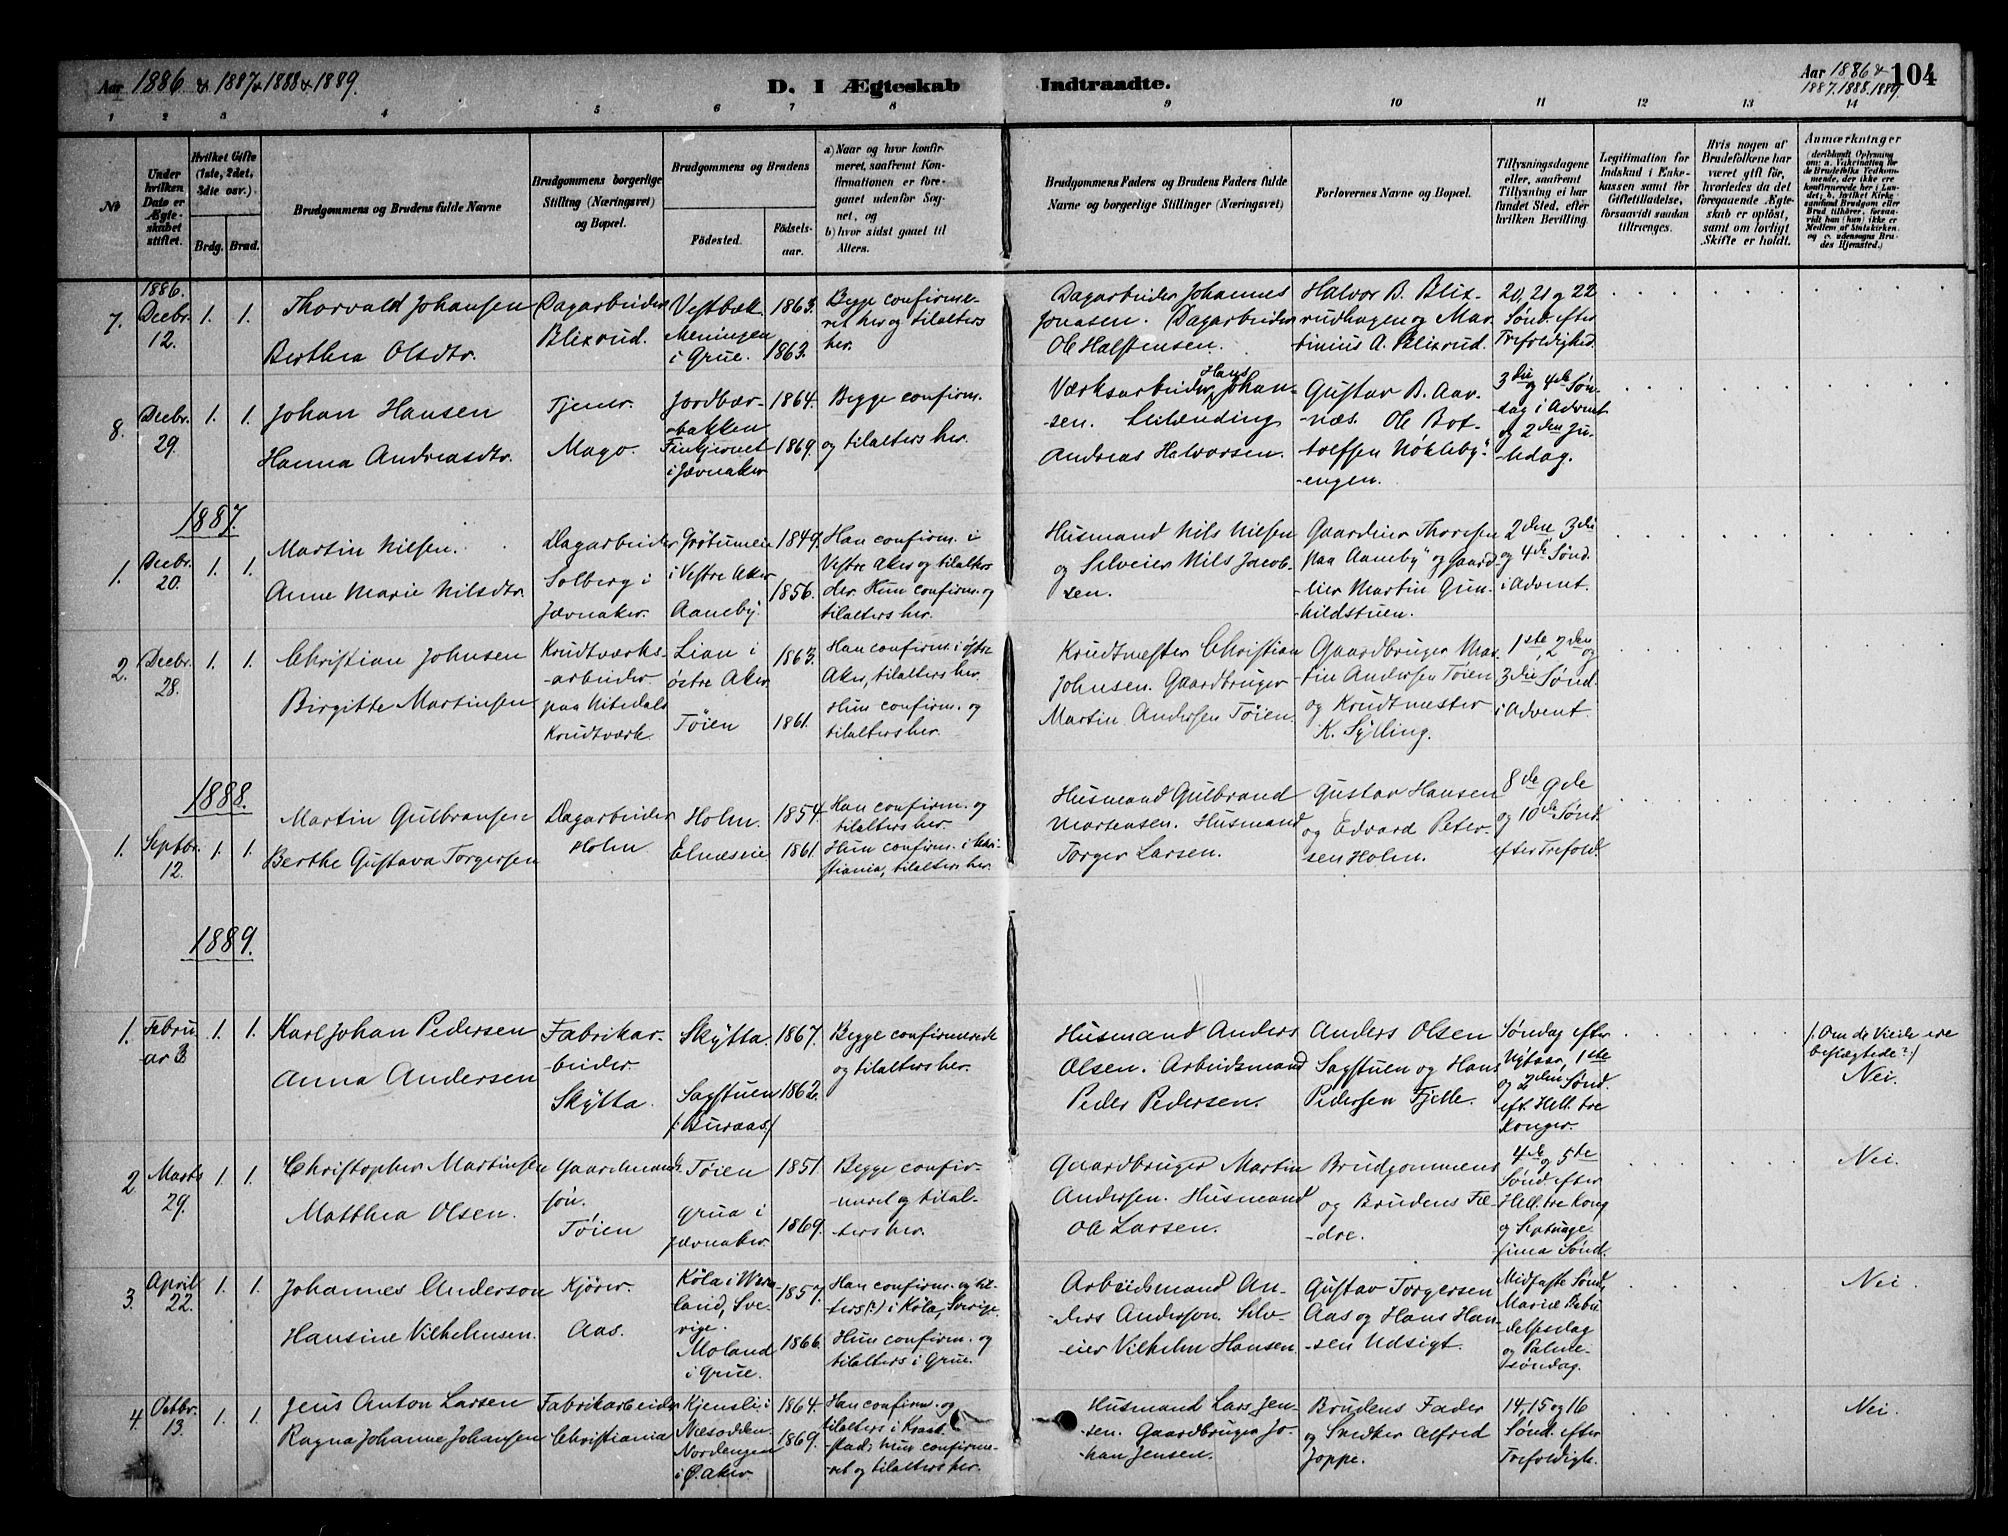 Aar 1886 & 1887 & 1888 & 1889.
D. I Ægteskab Indtraadte.
Aar 1886 &
1887. 1888. 1889.
104
1 2 3 4 5 6 7 8 9 10 11 12 13 14
No
Under
hvilken
Dato er
Ægte-
skabet
stiftet.
Hvilket Gifte
(1ste, 2det,
3die osv.).
Brdg. Brud.
Brudgommens og Brudens fulde Navne
Brudgommens borgerlige
Stilling (Næringsvei)
og Bopæl.
Brudgommens og Brudens
Fødested.
Fødsels-
aar.
a) Naar og hvor konfir-
meret, saafremt Kon-
firmationen er fore-
gaaet udenfor Sog-
net, og
b) hvor sidst gaaet til
Alters.
Brudgommens Faders og Brudens Faders fulde
Navne og borgerlige Stillinger (Næringsvei)
Forlovernes Navne og Bopæl.
Tillysningsdagene
eller, saafremt
Tillysning ei har
fundet Sted, efter
hvilken Bevilling.
Legitimation for
Indskud i Enke-
kassen samt for
Giftetilladelse,
forsaavidt saadan
tiltrænges.
Hvis nogen af
Brudefolkene har
været gift før,
hvorledes da det
foregaaende Ægte-
skab er opløst,
samt om lovligt
Skifte er holdt.
Anmærkninger
(deriblandt Oplysning
om: a. Vaksination for
de Brudefolks Vedkom-
mende, der ikke ere
konfirmerede her i Lan-
det, b. hvilket Kirke-
samfund Brudgom eller
Brud tilhører, forsaa-
vidt han (hun) ikke er
Medlem af Statskirken,
og c. udensogns Bru-
des Hjemsted.)
1886.
7. Decbr. 12. 1. 1.
Thorvald Johansen
Berthea Olsdtr.
Dagarbeider
Blixrud.
Vestbæk. 1863.
Meningen
i Grue. 1863.
Begge confirme-
ret her og tilalters
her.
Dagarbeider Johannes
Jonasen. Dagarbeider
Ole Halstensen.
Halvor B. Blix-
rudhagen og Mar-
tinius A. Blixrud.
20, 21 og 22
Sønd. efter
Trefoldighed.
8. Decbr. 29. 1. 1.
Johan Hansen
Hanna Andreasdtr.
Tjener.
Mago.
Jordbær- 1864.
-bakken
Finkjernet 1869.
i Jævnaker
Begge confirm.
og tilalters her.
Værksarbeider Hans Johan-
-sen. Leilænding
Andreas Halvorsen.
Gustav B. Aar-
-næs. Ole Bot-
tolfsen Nökleby-
-engen.
3die og 4de Søn-
-dag i Advent
og 2den Ju-
-ledag.
1887.
1. Decbr. 20. 1. 1.
Martin Nilsen.
Anne Marie Nilsdtr.
Dagarbeider
Solberg i
Jævnaker.
Grötumeie 1849.
i Vestre Aker
Aaneby. 1856.
Han confirm. i
Vestre Aker og tilalters
der. Hun confirm. og
tilalters her.
Husmand Nils Nilsen
og Selveier Nils Jacob-
sen.
Gaardeier Thoresen
paa Aaneby og Gaard-
eier Martin Gun-
-hildstuen.
2den, 3die
og 4de Sønd.
i Advent.
2. Decbr. 28. 1. 1.
Christian Johnsen
Birgitte Martinsen
Krudtværks-
-arbeider
paa Nitedals
Krudtværk.
Lian i 1863.
östre Aker
Tøien 1861.
Han confirm. i östre
Aker, tilalters her.
Hun confirm. og
tilalters her.
Krudtmester Christian
Johnsen. Gaardbruger
Martin Andersen Tøien.
Gaardbruger Mar-
-tin Andersen Tøien
og Krudtmester
K. Sylling.
1ste, 2den og
3die Sønd.
i Advent.
1888.
1. Septbr. 12. 1. 1.
Martin Gulbransen
Berthe Gustava Torgersen
Dagarbeider
Holm
Holm. 1854.
Elnæseie 1861.
Han confirm. og
tilalters her.
Hun confirm. i Chri-
stiania, tilalters her.
Husmand Gulbrand
Mortensen. Husmand
Torger Larsen.
Gustav Hansen
og Edvard Peter-
sen Holm.
8de, 9de
og 10de Sønd.
efter Trefold.
1889.
1. Febru-
ar 3 1. 1.
Karl Johan Pedersen
Anna Andersen
Fabrikar-
-beider.
Skÿtta.
Skÿtta. 1867.
Sagstuen 1862.
/: Buraas /
Begge confirmerede
og tilalters her.
Husmand Anders
Olsen. Arbeidsmand
Peder Pedersen.
Anders Olsen
Sagstuen og Hans
Pedersen Fjelle.
Søndag efter
Nytaar, 1ste
og 2den Sønd.
eft. Hell. tre
Konger.
/: Om de Viede ere
beslægtede? :/
Nei.
2 Marts 29. 1. 1.
Christopher Martinsen
Matthea Olsen.
Gaardmands-
søn.
Tøien
Tøien 1851.
Grua i 1869.
Jævnaker.
Begge confir-
meret og tilal-
-ters her.
Gaardbruger Martin
Andersen. Husmand
Ole Larsen.
Brudgommens
og Brudens Fæ-
-dre.
4de og 5te
Sønd. efter
Hell. tre Kong.
og Septuage-
sima Sønd.
Nei.
3. April 22. 1. 1.
Johannes Anderson
Hansine Vilhelmsen.
Kjörer.
Aas.
Köla i Werm- 1857.
land, Sve-
rige.
Moland 1866.
i Grue.
Han confirm. og til-
ters(?) i Köla, Sverige.
Hun confirm. og
tilalters i Grue.
Arbeidsmand An-
-ders Anderson. Selv-
eier Vilhelm Hansen.
Gustav Torgersen
Aas og Hans Han-
-sen Udsigt.
Midfaste Sønd.
Mariæ Bebu-
delsesdag
og Palme-
søndag.
Nei.
4. Octbr. 13. 1. 1.
Jens Anton Larsen
Ragna Johanne Johansen
Fabrikarbeider
Christiania
Kjensli i 1864.
Næsodden
Nordengen 1869.
i Ø. Aker
Han confirm. og
tilalters i Kraak-
stad; Hun confirme-
ret og tilalters her.
Husmand Lars Jen-
sen. Gaardbruger Jo-
han Jensen.
Brudens Fader
og Snedker Alfred
Joppe.
14, 15 og 16
Sønd. efter
Trefoldigh.
Nei.